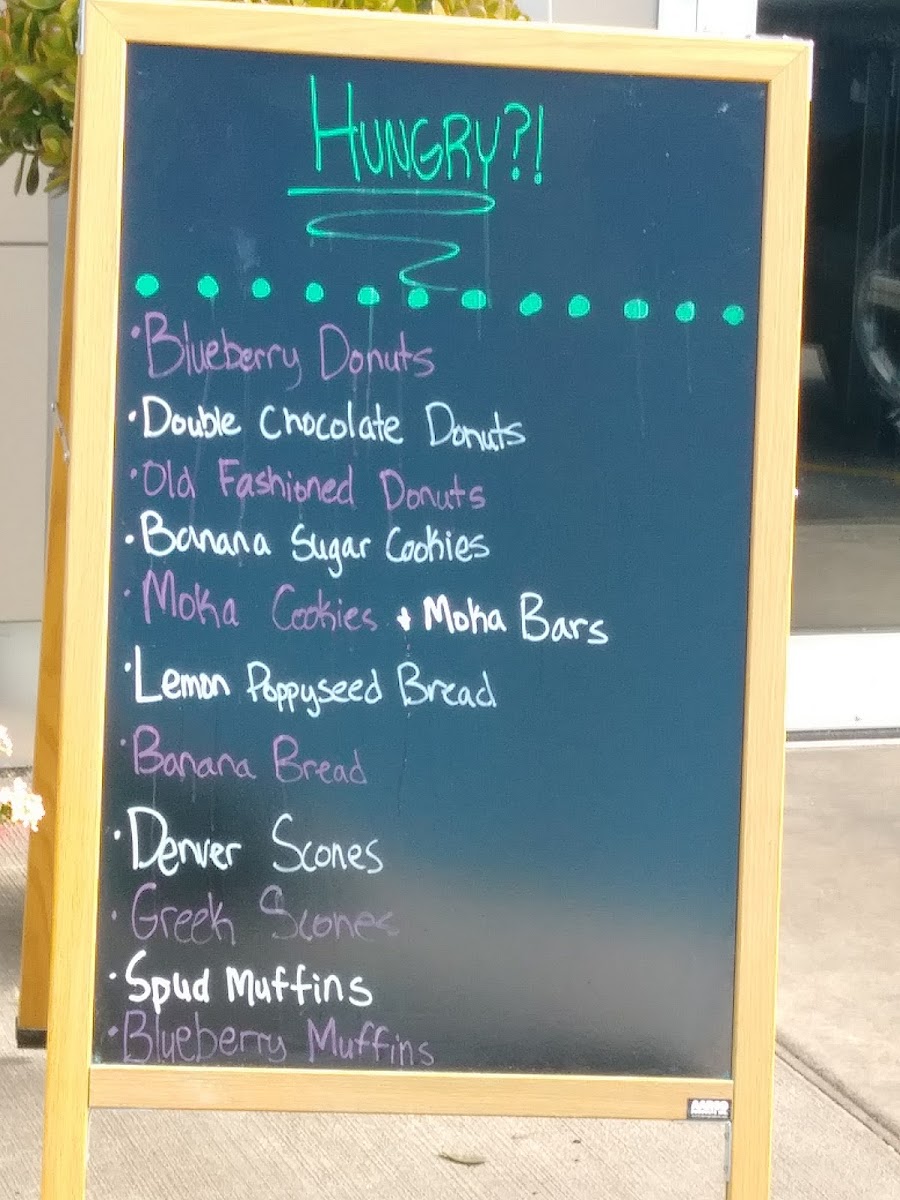 HUNGRY?!
• Blueberry Donuts
• Double Chocolate Donuts
• Old Fashioned Donuts
• Banana Sugar Cookies
• Moka Cookies + Moka Bars
• Lemon Poppyseed Bread
• Banana Bread
• Denver Scones
• Greek Scones
• Spud Muffins
• Blueberry Muffins